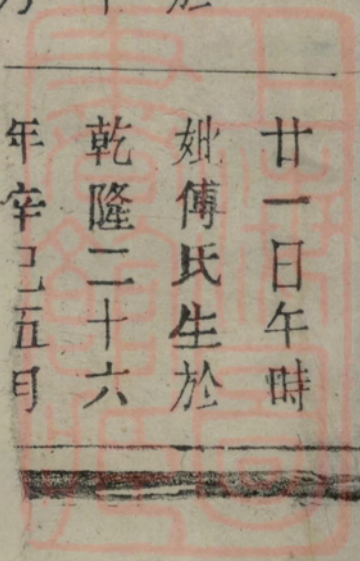 廿一日午時
妣傅氏生於
乾隆二十六
年辛巳五月